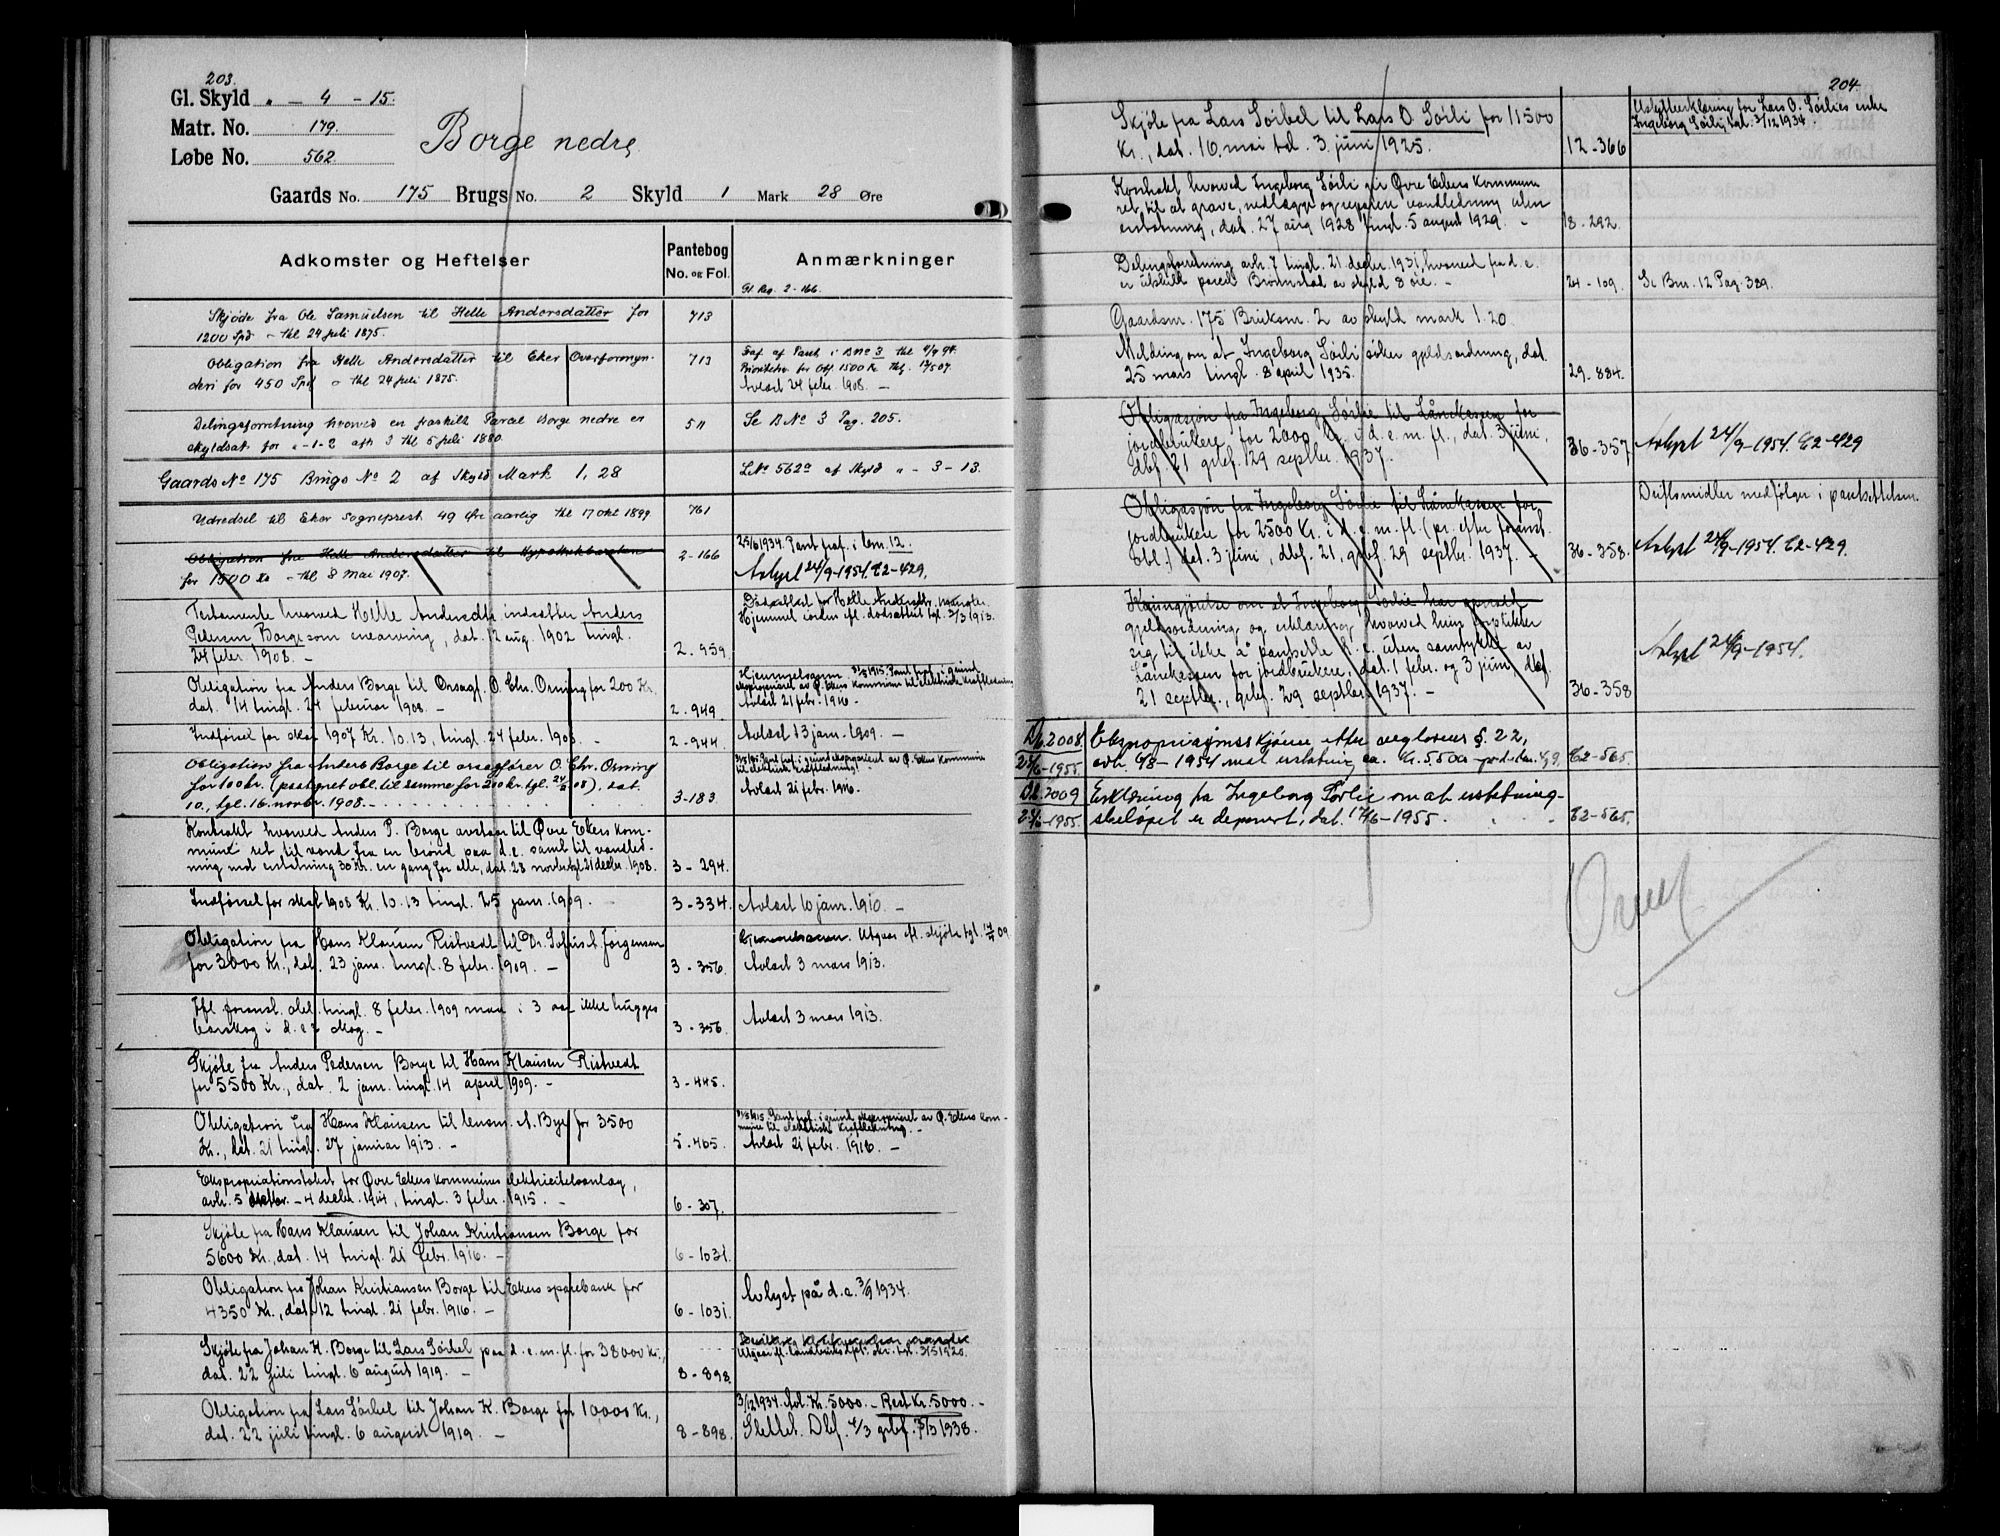 203.
Gl. Skyld „ – 4 – 15.
Matr. No. 179.
Løbe No. 562.
Borge nedre
Gaards No. 175 Brugs No. 2 Skyld 1 Mark 28 Øre
Adkomster og Heftelser
Pantebog
No. og Fol.
Anmærkninger
Gl. Reg. 2-166.
Skjøde fra Ole Samuelsen til Helle Andersdatter for
1200 Spd – thl 24 juli 1875.
713
Obligation fra Helle Andersdatter til Eker Overformyn-
deri for 450 Spd – thl 24 Juli 1875.
713
Fraf. af Pant. i BNo 3 thl
Prioritetsv. for Obl. 1500 Kr
Avlæst 24 febr. 1908. –
Delingsforretning hvorved en fraskilt Parcel Borge nedre er
skyldsat for „-1-2 afh 3 thl 5 juli 1880.
511
Se BNo 3 Pag. 205.
Gaards No 175 Brugs No 2 af Skyld Mark 1,28
LNo 562a af Skyld „ – 3 – 13.
Udredsel til Eker Sogneprest 49 Øre aarlig thl 17 okt 1899
761
Obligation fra Helle Andersdatter til Hypothekbanken
for 1500 Kr – thl 8 Mai 1907.
2-166
25/6 1934. Pant fraf. i brn. 12.
Avlyst 24/9-1954. E2-429.
Testamente hvorved Helle Andersdtr indsætter Anders
Pedersen Borge som enearving, dat. 12 aug. 1902 tingl.
24 febr 1908. –
2-959
Dødsattest for Helle Andersdtr. mangler.
Hjemmel iorden efl. dødsattest tgl. 3/3 1913.
Obligation fra Anders Borge til Orsagf. O. Chr. Orning for 200 Kr.
dat. 14 tingl. 24 februar 1908. –
2-949
Avlæst 21 febr. 1916 –
Indførsel for skat 1907 Kr. 10.13, tingl. 24 febr. 1908. –
2-944
Avlæst 13 janr. 1909. –
Obligation fra Anders Borge til orsagfører O. Chr. Orning
for 100 kr. (paategnet obl. til samme for 200 kr. tgl. 24/2 08), dat.
10., tgl. 16. novbr. 1908. –
3-183
Avlæst 21 febr. 1916. –
Kontrakt hvorved Anders P. Borge avstaar til Øvre Ekers kom-
mune ret til vand fra en brønd paa d.e. samt til vandled-
ning mod erstatning 30 Kr. en gang for alle, dat. 28 novbr tgl 21 decbr. 1908.
3-294.
Indførsel for skat 1908 Kr. 10.13 tingl. 25 janr. 1909.
3-334
Avlæst 10 janr. 1910. –
Obligation fra Hans Klausen Ristvedt til Dr. Sofus A. Jørgensen
for 3000 Kr., dat. 23 janr. tingl. 8 febr. 1909. –
3-356
Utgaar efl. skjøte tgl. 14/4 09.
Avlæst 3 mars 1913.
Ifl. foranst. obl. tingl. 8 febr. 1909 maa i 3 aar ikke hugges
barskog i d.e.s skog. –
3-356.
Avlæst 3 mars 1913.
Skjøte fra Anders Pedersen Borge til Hans Klausen Ristvedt
for 5500 Kr., dat. 2 janr. tingl. 14 april 1909. –
3-445.
Obligation fra Hans Klausen til lensm. A. Bye for 3500
Kr., dat. 21 tingl. 27 januar 1913. –
5-465.
31/5 1915 Pant frof. i grund eksproprieret av Ø. Ekers kom-
mune til elektrisk kraftledning. –
Avlæst 21 febr. 1916. –
Ekspropriationstakst for Øvre Ekers kommunes elektricitetsanlæg,
avh. 5 oktbr. – 4 decbr. 1914, tingl. 3 febr. 1915. –
6-307.
Skjøte fra Hans Klausen til Johan Kristiansen Borge for
5600 Kr., dat. 14 tingl. 21 febr. 1916. –
6-1031.
Obligation fra Johan Kristiansen Borge til Ekers sparebank for
4350 Kr., dat. 12 tingl. 21 febr. 1916. –
6-1031
Avlyst på d.e. 3/9 1934.
Skjøte fra Johan K. Borge til Lars Sørbel paa d.e.m.fl. for 38000 Kr.,
dat. 22 juli tingl. 6 august 1919. –
8-898.
Obligation fra Lars Sørbel til Johan K. Borge for 10000 Kr.,
dat. 22 juli tingl. 6 august 1919. –
8-898
3/12 1934. Avl. Kr. 5000. – Rest Kr. 5000. –
Slettet. Dbf. 4/3 grbf. 7/3 1938.
204.
Skjøte fra Lars Sørbel til Lars O. Sørli for 11500
Kr., dat. 16. mai tgl. 3. juni 1925.
12-366
Uskifteerklæring for Lars O. Sørlies enke
Ingeborg Sørli, tgl. 3/12 1934.
Kontrakt hvorved Ingeborg Sørli gir Øvre Ekers Kommune
ret til at grave, nedlægge og reparere vandledning uten
erstatning, dat. 27 aug 1928 tingl. 5 august 1929. –
18-292.
Delingsforretning avh. 7 tingl. 21 decbr. 1931, hvorved fra d.e.
er utskilt parcel Brønnstad av skyld 8 øre. –
24-109.
Se Bnr. 12 Pag. 329.
Gaardsnr. 175 Bruksnr. 2 av skyld mark 1.20.
Melding om at Ingeborg Sørli søker gjeldsordning, dat.
25 mars tingl. 8 april 1935.
29-884.
Obligasjon fra Ingeborg Sørlie til Lånekassen for
jordbrukere for 2000 kr. i d.e.m.fl., dat. 3 juni,
dbf. 21 grbf. 29 septbr. 1937.
36-357
Avlyst 24/9-1954. E2-429
Obligasjon fra Ingeborg Sørlie til Lånekassen for
jordbrukere for 2500 Kr. i d.e.m.fl. (pr. efter foranst.
obl.) dat. 3 juni, dbf. 21, grbf. 29 septbr. 1937. –
36-358.
Driftsmidler medfølger i pantsettelsen.
Avlyst 24/9-1954. E2-429.
Kunngjørelse om at Ingeborg Sørlie har opnådd
gjeldsordning og erklæring hvorved hun forplikter
sig til ikke å pantsette d.e. uten samtykke av
Lånekassen for jordbrukere, dat. 1 febr. og 3 juni, dbf.
21 septbr., grbf. 29 septbr. 1937. –
36-358
Avlyst 24/9-1954.
Db. 2008
23/6-1955.
Ekspropriasjonsskjønn etter vegloven § 22,
E2-565.
Db. 2009
23/6-1955.
Erklæring fra Ingeborg Sørlie om at erstatning-
sbeløpet er deponert, dat. 17/6-1955.
E2-565.